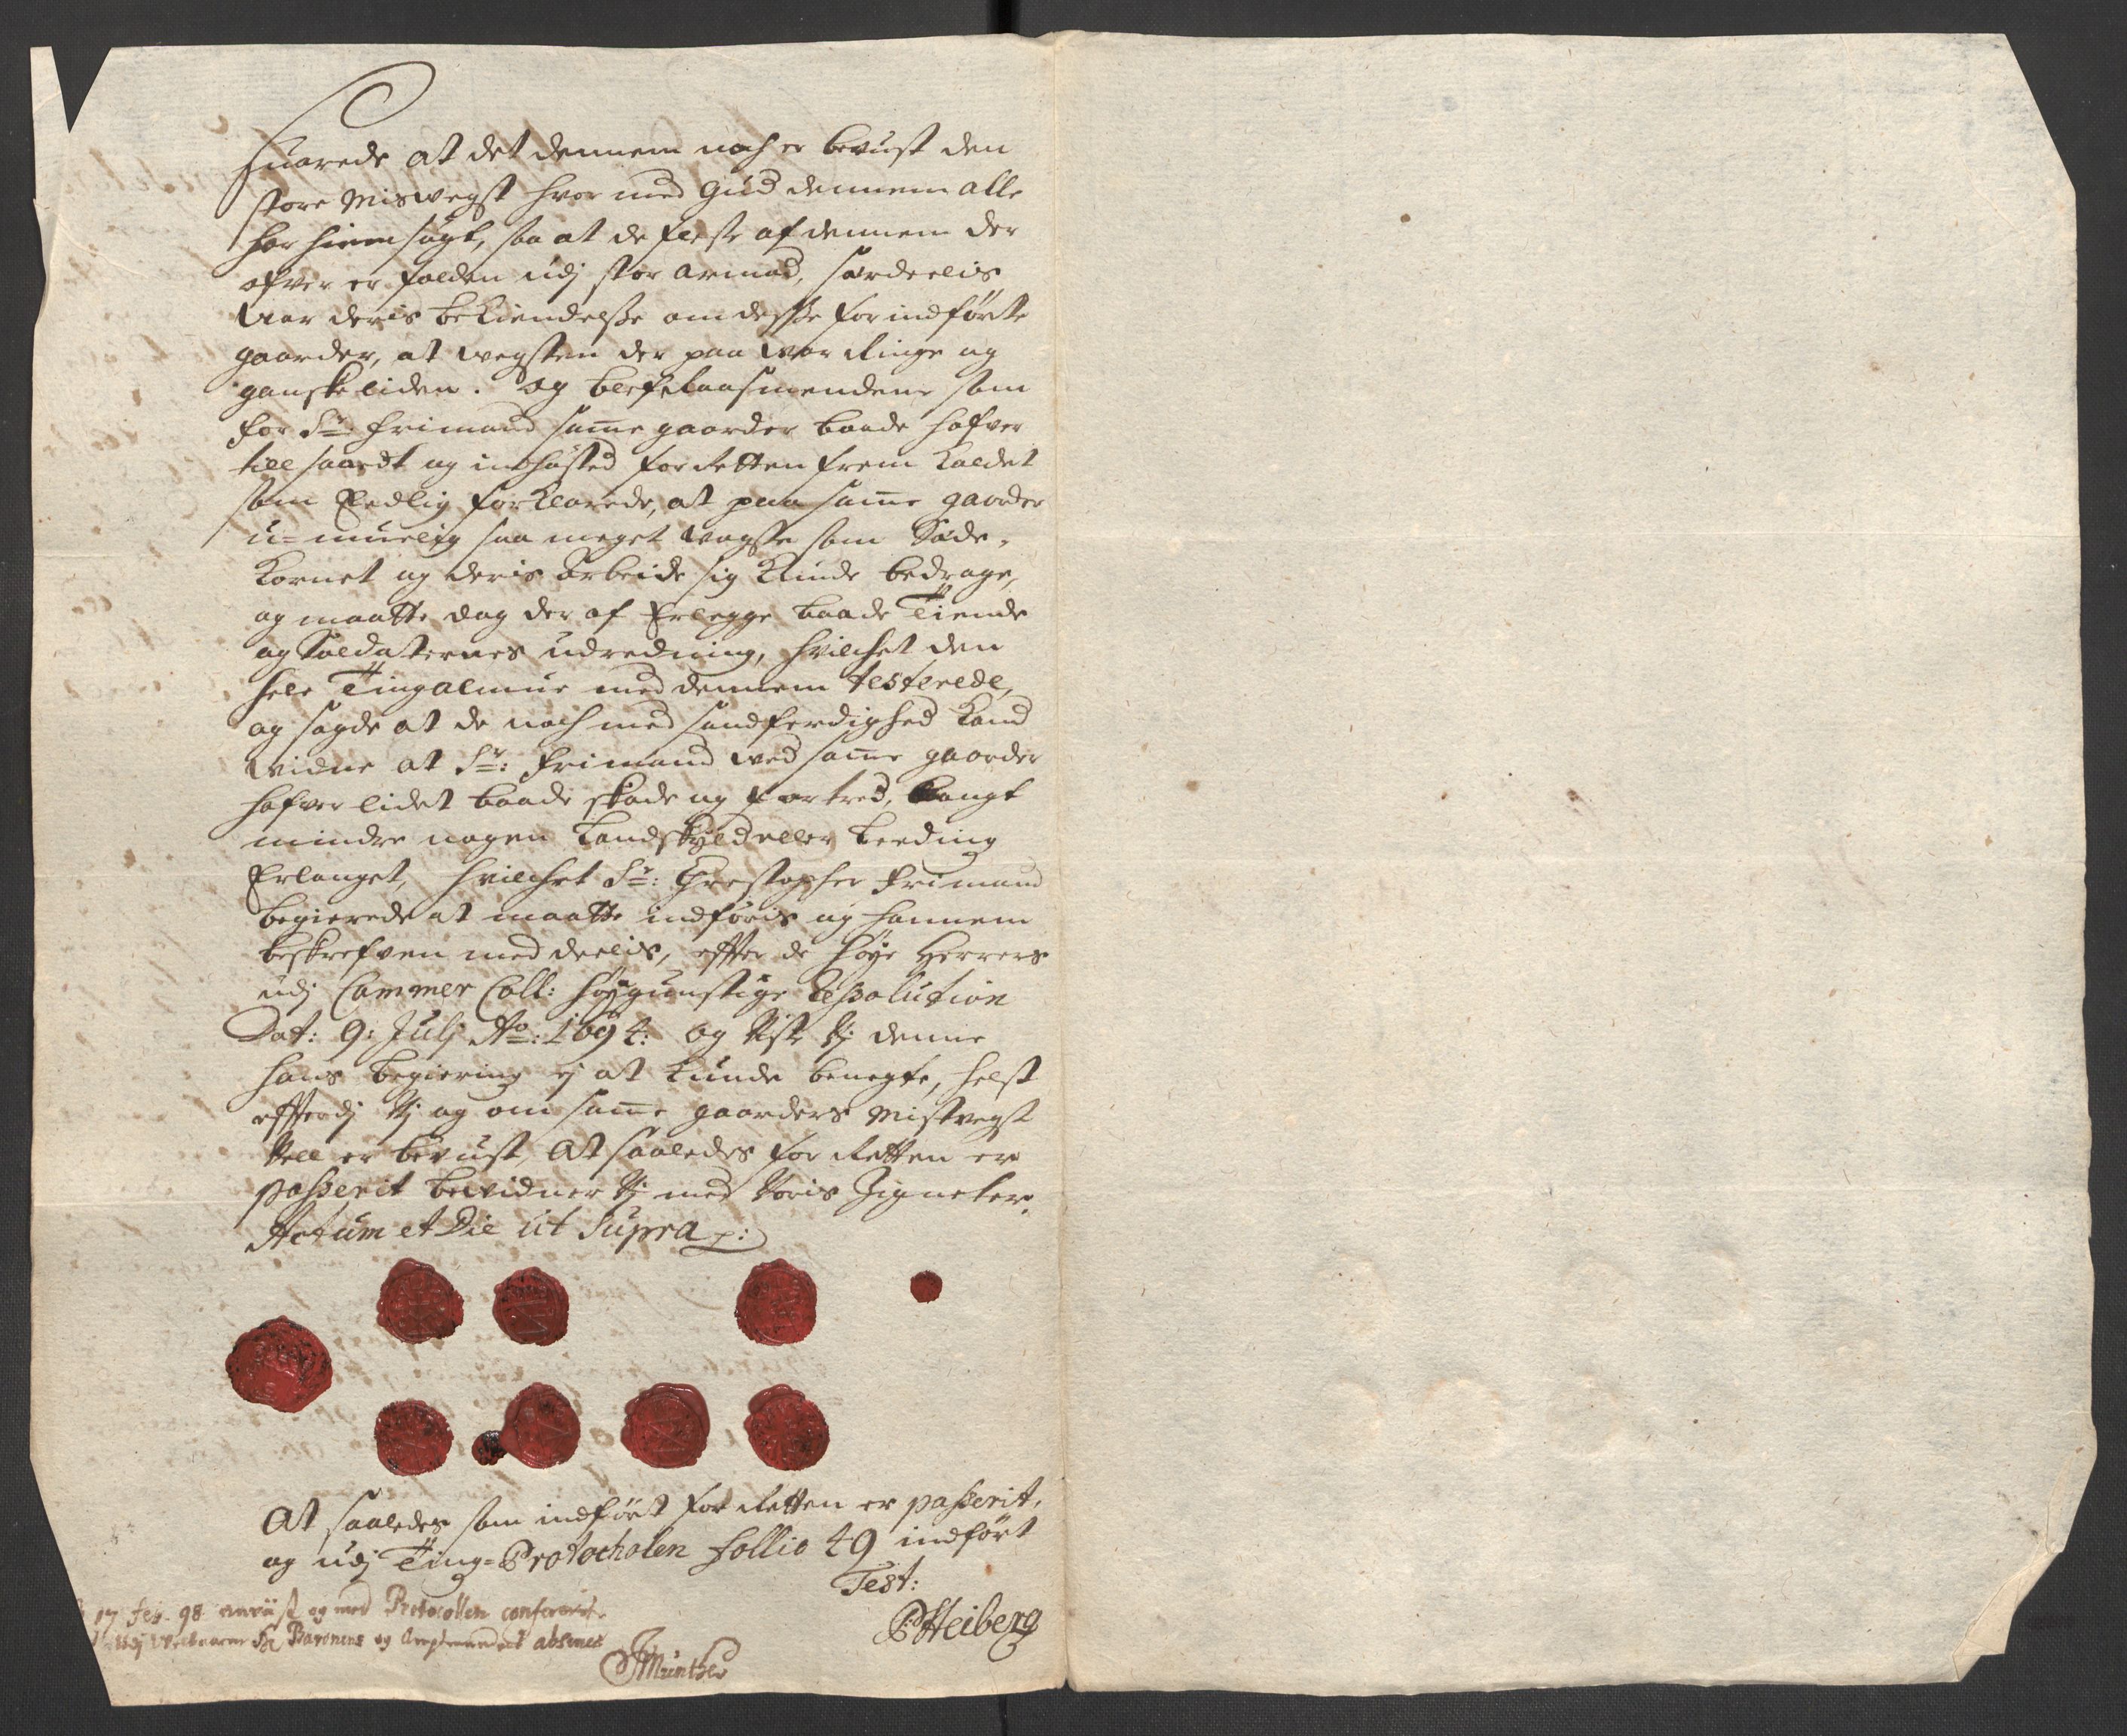 Suarede at det dennem noch er bevust den
store Miswegst hvor med Gud dennem alle
har hiemsøgt, saa at de fleste af dennem der
ofver er falden udj stor armod, særdeelis
War deris bekiendelsse om desse for indførte
gaarder, at wegsten der paa War Ringe og
ganske liden. Og som
for Sr. Frimand samme gaarder baade hafver
till saaedt og indhøsted for Retten frem kaldet
som Eedlig forklarede, at paa samme gaarder
u-muelig saa meget Wogste som Sæde-
Kornet og deris Arbeide sig kunde bedrage,
og maatte dog der af Erlegge baade Tiende
og Soldaternes udredning, hvilchet den
hele Tingalmue med dennem testerede,
og sagde at de noch med sandferdighed kand
Widne at Sr: Frimand wed samme gaarder
hafver lidet baade skade og fortred, langt
mindre nogen Landskyld eller leeding
Erlanget, hvilchet Sr: Chrestopher Frimand
begierede at maatte indføris og hannem
beskrefven meddeelis, effter de høye Herrers
udj Cammer Coll: høygunstige Ressolution
Dat: 9: Julj Ao: 1694: og Viste Vj denne
hans begiering ej at kunde benegte, helst
effterdj Vj og om samme gaarders Mistvegst
Vell er bevust, At saaledes for Retten er
passerit bevidner Vj med Voris Zigneter.
Actum et Die ut Supra
At saaledes som indført for Retten er passerit,
og udj Ting-Protocholen follio 49 indført
Test:
PHeiberg
17 feb. 98 anvist og med Protocollen confererit
udj Hr Baronens og Amptmandens absence
JMünthe